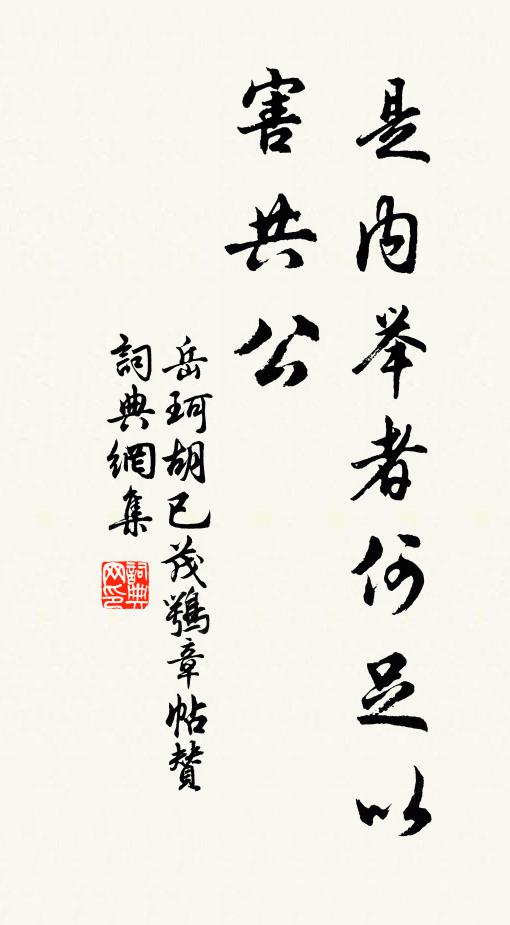 是内举者何足以
害共公
岳珂胡已茂鶚章帖贊
詞典網集
詞典网印